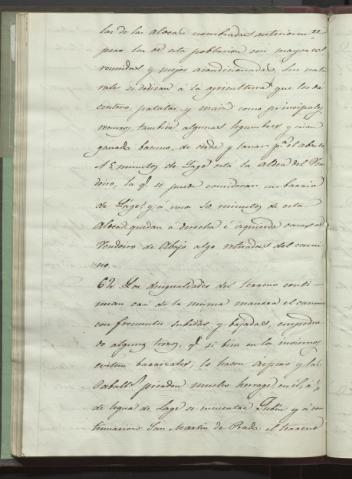 las de las aldeas nombradas anteriorm.te
pero las de esta poblacion son mayores
reunidas y mejor acondicionadas. Sus natu
rales se dedican á la agricultura que les da
centeno, patatas, y maiz como principales
tambien algunas legumbres y crian
ganado bacuno, de cerda y lanar p.a el abasto
A 5 minutos de Lage esta la Aldea del
la q.e se puede considerar un barrio
de Lage, y á unos 10 minutos de esta
Aldea quedan á derecha é izquierda
Vendoiro de Abajo algo retirados del cami
no.
62. Las desigualdades del terreno conti-
nuan casi de la misma manera el camino
con frecuentes subidas, y bajadas, empedra
do algunos trozos, q.e si bien en lo
evitan barrizales, lo hacen aspero y las
Caball.s pierden mucho herrage en él, á ½
de legua de Lage se encuentra y á con
tinuacion San Martin de Prado. El terreno